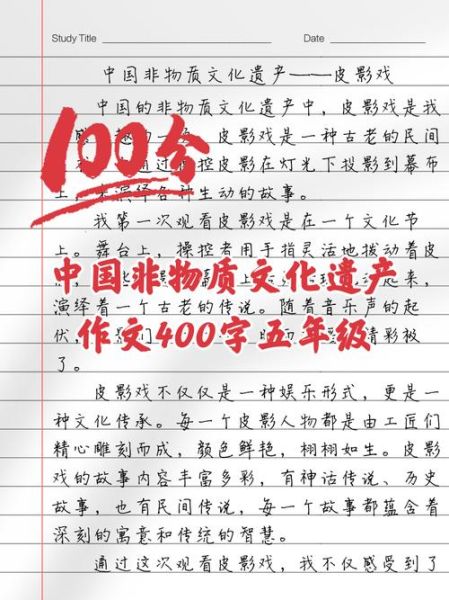 Study Title
Date
中国非物质文化遗产——皮影戏
中国的非物质文化遗产中，皮影戏是我
趣的一 皮影戏是一种古老的民间
通过操控皮影在灯光下投影到幕布
上， 演绎各种生动的故事。
100分
我第一次观看皮影戏是在一个文化节
上。舞台上，操控者用手指灵活地拨动着皮
来，
中国非物质文化遗产
演绎着一个古老的传说。随着音乐声的起
伏， 精彩极
作文400字五年级
了。
皮影戏不仅仅是一种娱乐形式，更是一
种文化传承。每一个皮影人物都是由工匠们
精心雕刻而成，颜色鲜艳，栩栩如生。皮影
戏的故事内容丰富多彩，有神话传说、历史
故事，也有民间传说，每一个故事都蕴含着
深刻的寓意和传统的智慧。
通过这次观看皮影戏，我不仅感受到了